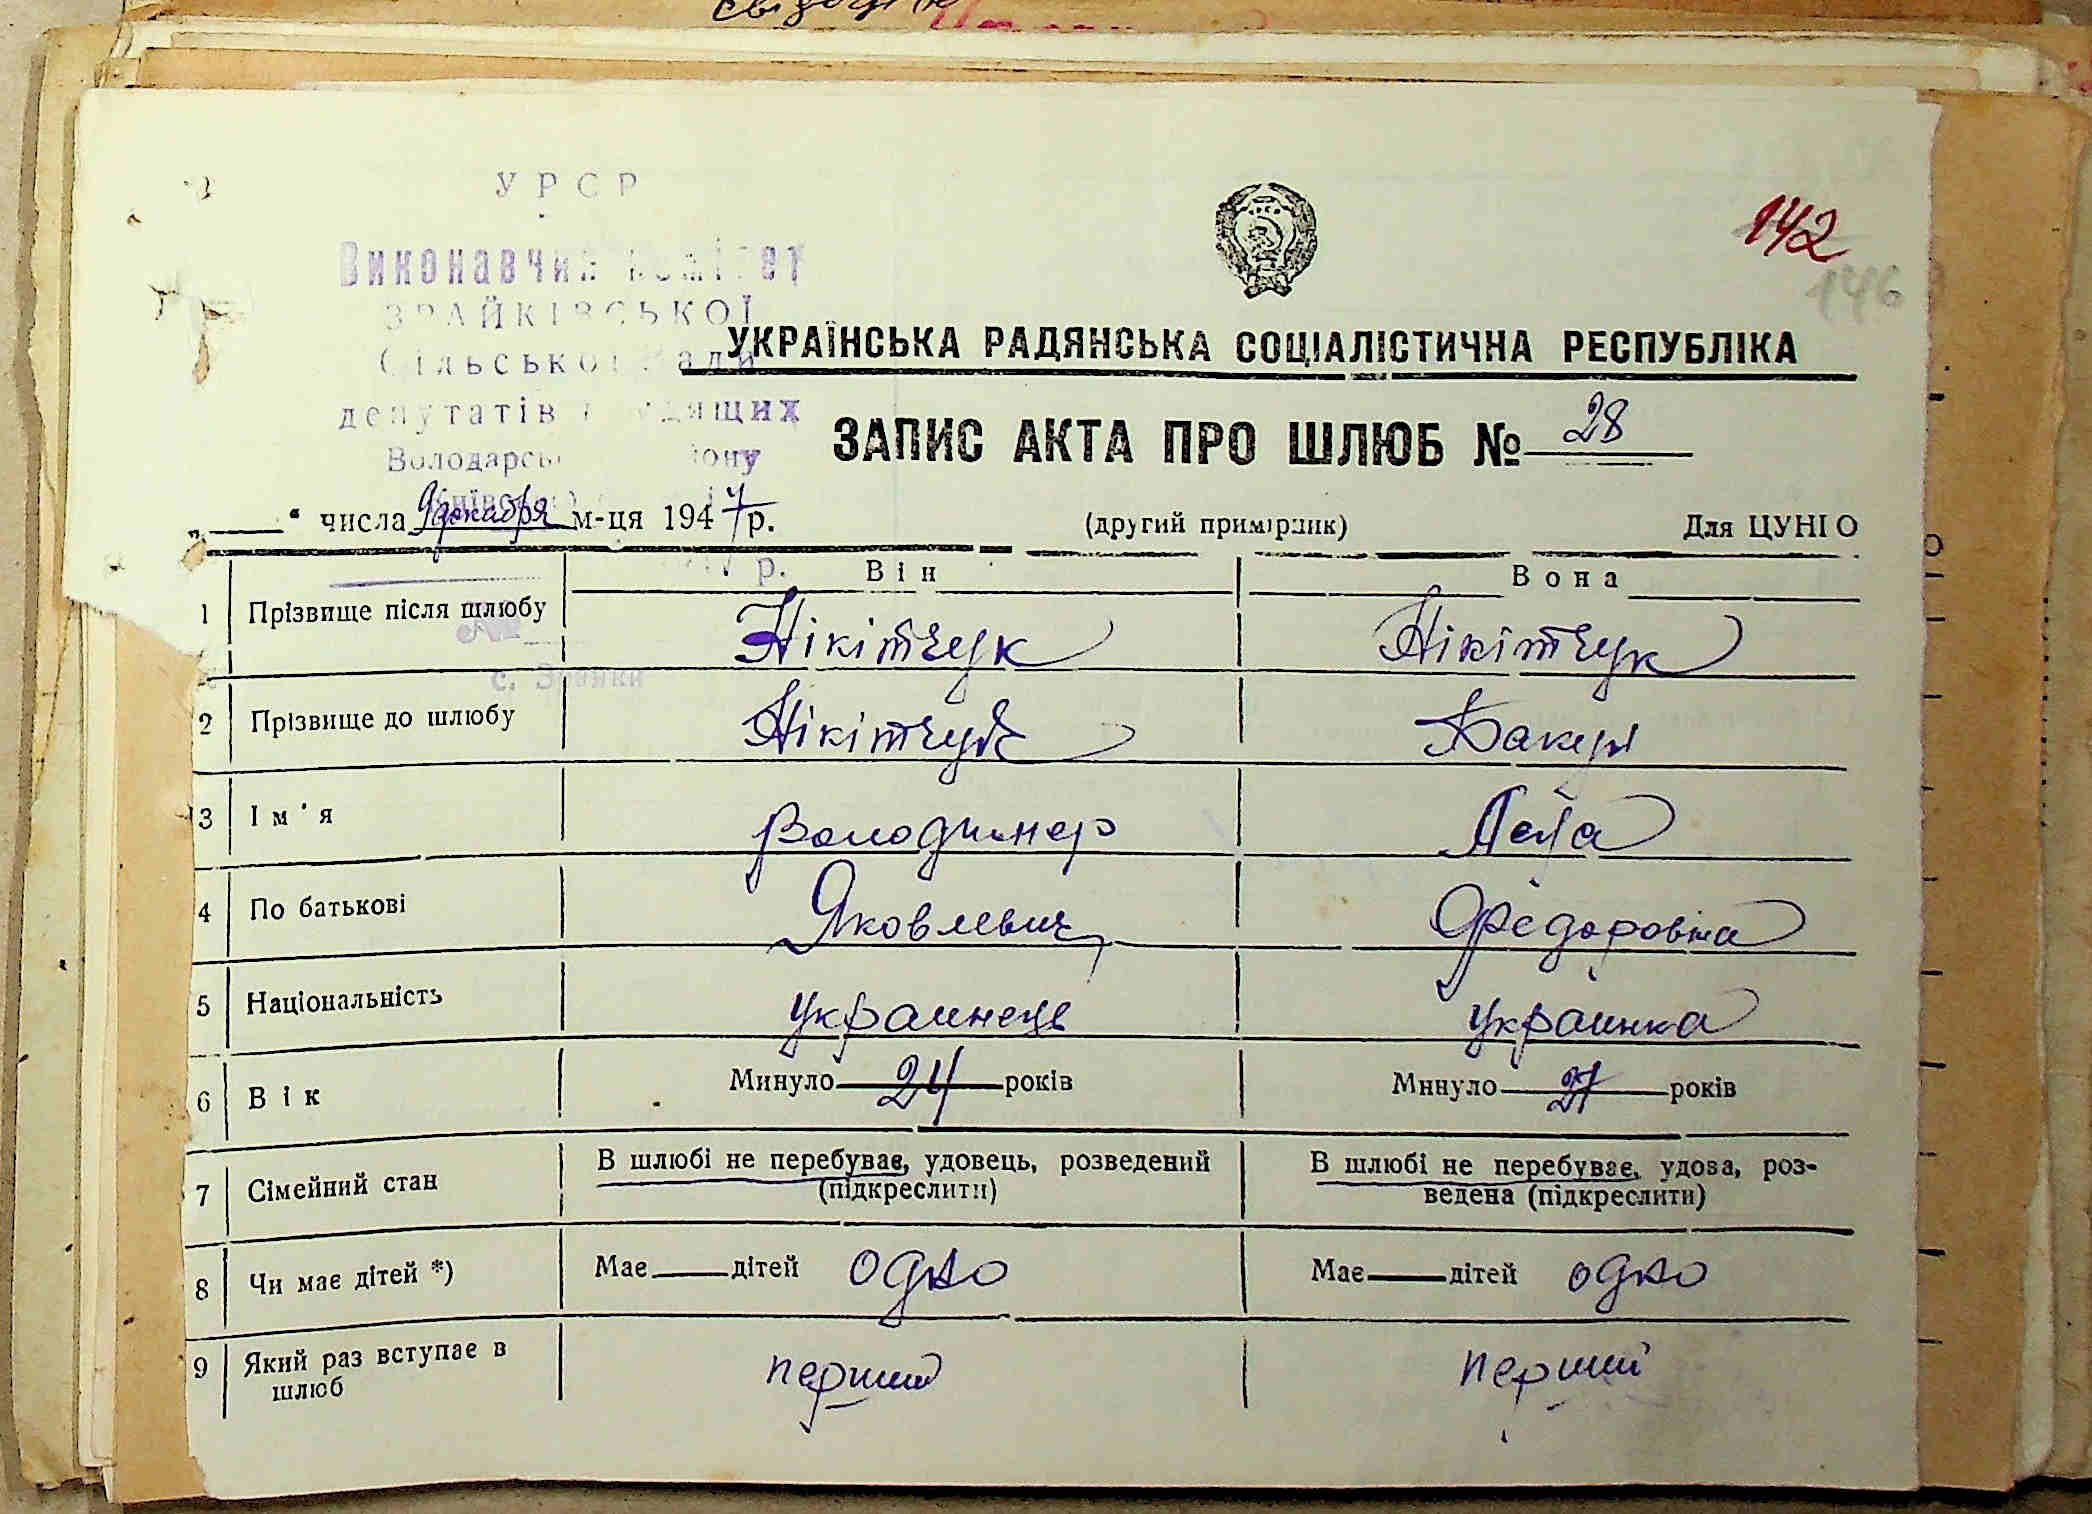 УРСР
Виконавчий комітет
ЗРАЙКІВСЬКОЇ
Сільської Ради
депутатів трудящих
142
146
УКРАЇНСЬКА РАДЯНСЬКА СОЦІАЛІСТИЧНА РЕСПУБЛІКА
ЗАПИС АКТА ПРО ШЛЮБ № 28
„ “ числа 9 декабря м-ця 1947 р. (другий примірник) Для ЦУНГО
р.
Він Вона
1 Прізвище після шлюбу Нікітчук Нікітчук
№
с. Зрайки
2 Прізвище до шлюбу Нікітчук Бакун
3 Ім'я Володимер
4 По батькові Яковлевич Федоровна
5 Національність украинець украинка
6 Вік Минуло 24 років Минуло 27 років
7 Сімейний стан В шлюбі не перебуває, удовець, розведений (підкреслити) В шлюбі не перебуває, удова, розведена (підкреслити)
8 Чи має дітей *) Має дітей одно Має дітей одно
9 Який раз вступає в шлюб перший перший